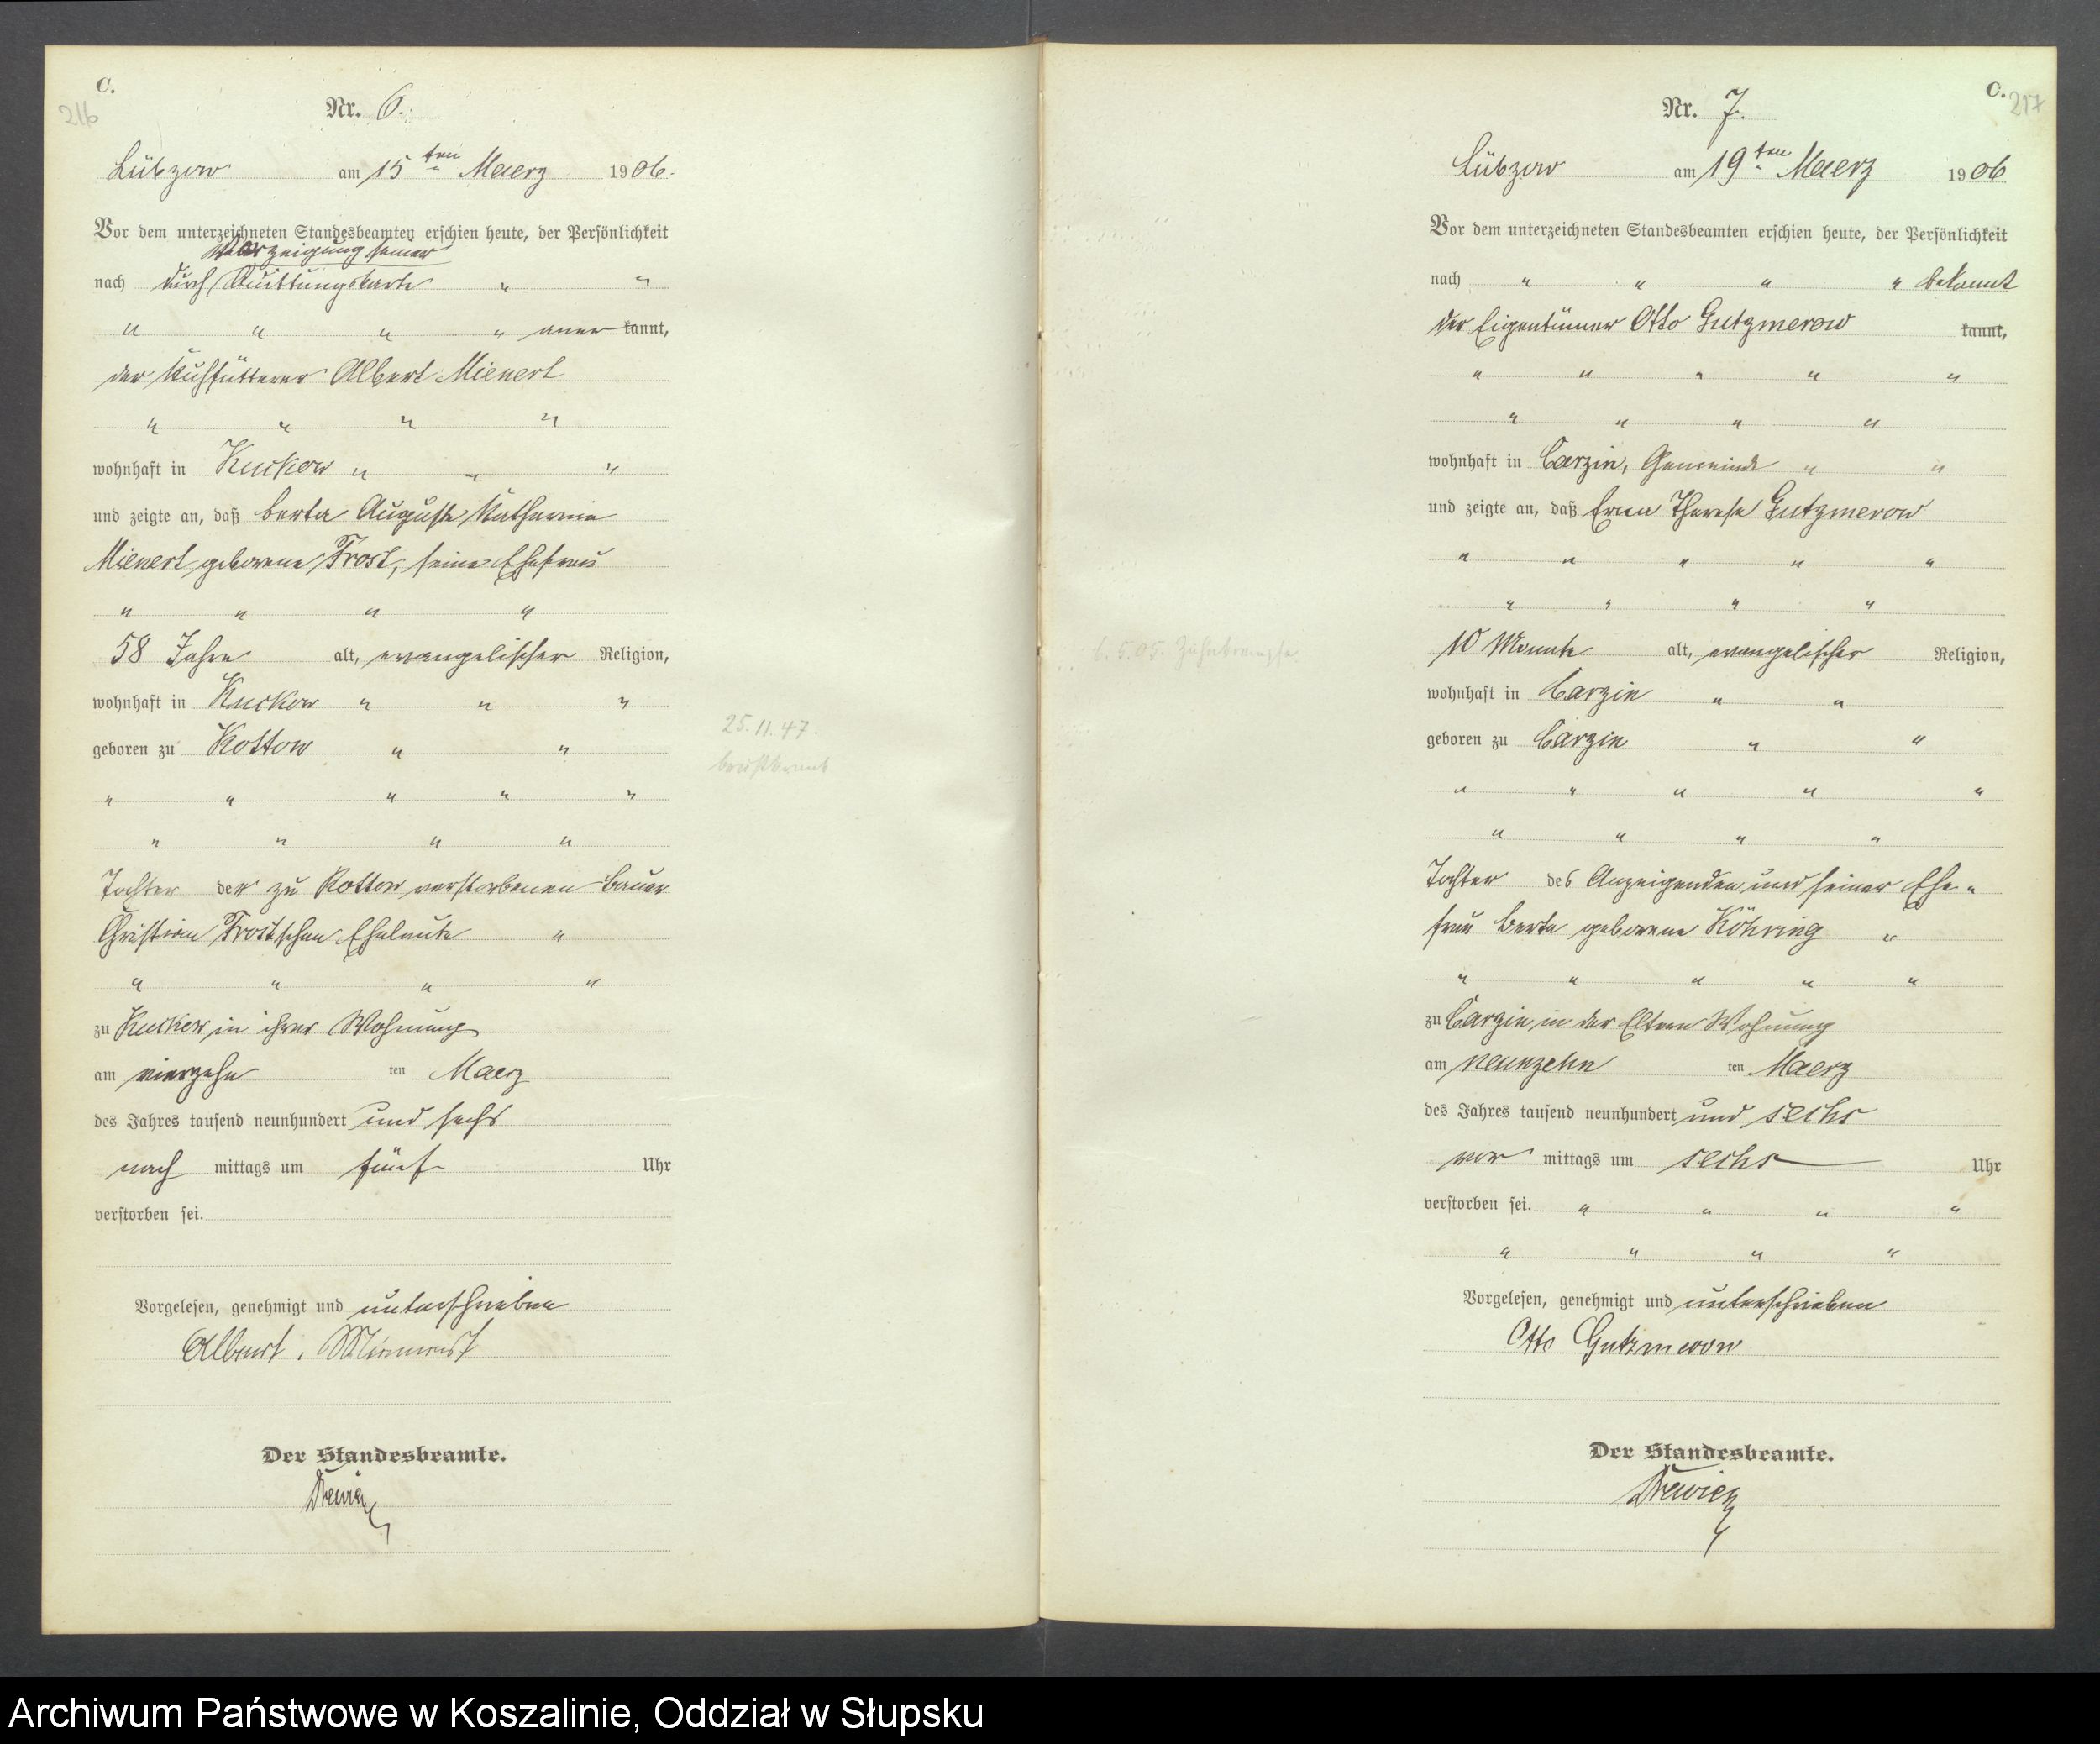 C.
216
Nr. 6.
Lübzow am 15ten Maerz 1906.
Vor dem unterzeichneten Standesbeamten erschien heute, der Persönlichkeit
Vorzeigung seiner
nach durch Quittungskarte " "
" " " " aner kannt,
der Kuhfütterer Albert Mienert
" " " "
wohnhaft in Kuckow " " "
und zeigte an, daß Berta Auguste Katharine
Mienert geborene Frost, seine Ehefrau
" " " "
58 Jahre alt, evangelischer Religion,
wohnhaft in Kuckow " " "
geboren zu Kottow " "
" " " " "
" " " "
Tochter der zu Kottow verstorbenen Bauer
Christian Frostschen Eheleute "
" " " "
zu Kuckow in ihrer Wohnung
am vierzehn ten Maerz
des Jahres tausend neunhundert und sechs
nach mittags um fünf Uhr
verstorben sei.
Vorgelesen, genehmigt und unterschrieben
Albert Mienert
Der Standesbeamte.
Drewin
25.11.47.
brustkrank
C.
217
Nr. 7.
Lübzow am 19ten Maerz 1906
Vor dem unterzeichneten Standesbeamten erschien heute, der Persönlichkeit
nach " " " " bekannt
der Eigentümer Otto Gutzmerow kannt,
" " " " "
" " " "
wohnhaft in Carzin, Gemeinde " "
und zeigte an, daß Erna Therese Gutzmerow
" " " " "
" " " "
10 Monate alt, evangelischer Religion,
wohnhaft in Carzin " "
geboren zu Carzin " "
" " " " "
" " " "
Tochter des Anzeigenden und seiner Ehe-
frau Berta geborene Köhring "
" " " " "
zu Carzin in der Eltern Wohnung
am neunzehn ten Maerz
des Jahres tausend neunhundert und sechs
vor mittags um sechs Uhr
verstorben sei. " " " "
" " " "
Vorgelesen, genehmigt und unterschrieben
Otto Gutzmerow
Der Standesbeamte.
6.5.05. Zahnkrämpfe
Archiwum Państwowe w Koszalinie, Oddział w Słupsku